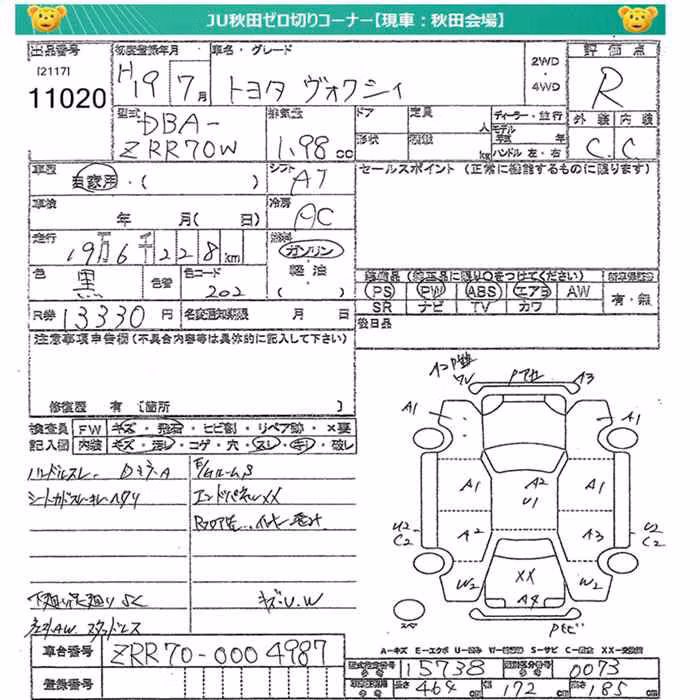 JU秋田ゼロ切りコーナー【現車：秋田会場】
出品番号 初度登録年月 車名・グレード 2WD ・ 4WD 評価点
[2117]
11020 H19 7月 トヨタ ヴォクシィ R
型式 排気量 ドア 定員 人 ディーラー・並行 外装 内装
DBA-
ZRR70W 1.98 cc 形状 積載 kg モデル 年式 年 ハンドル 左・右 C C
車歴 自家用・( ) シフト AT セールスポイント（正常に機能するものに限ります）
車検 年 月( 日) 冷房 AC
走行 19万6千228km 燃料 ガソリン
色 黒 色替 色コード 202 軽油 ・( )
装備品（純正品に限り○をつけてください）
PS PW ABS エアB AW 有・無
SR ナビ TV カワ
R券 13330円 名変通知期限 月 日 後日品
注意事項申告欄（不具合内容等は具体的に記入して下さい）
修復歴 有 [箇所 ]
検査員 FW キズ・飛石・ヒビ割・リペア跡・×要
記入図 内装 キズ・汚レ・コゲ・穴・スレ・キリ・破レ
ハンドルスレ
エンドパネルXX
下廻り足廻りSC
キズ.U.W
A3
A1 A1
A1 A2 U1 A1
U2 C2 A2 A3 U2 C2
W2 XX A4 W2
A-キズ E-エクボ U-凹み W-補修跡 S-サビ C-腐食 XX-交換済
車台番号 ZRR70-0004987
型式指定番号 15738 類別区分番号 0073
登録番号 長さ 464cm 幅 172cm 高さ 185cm